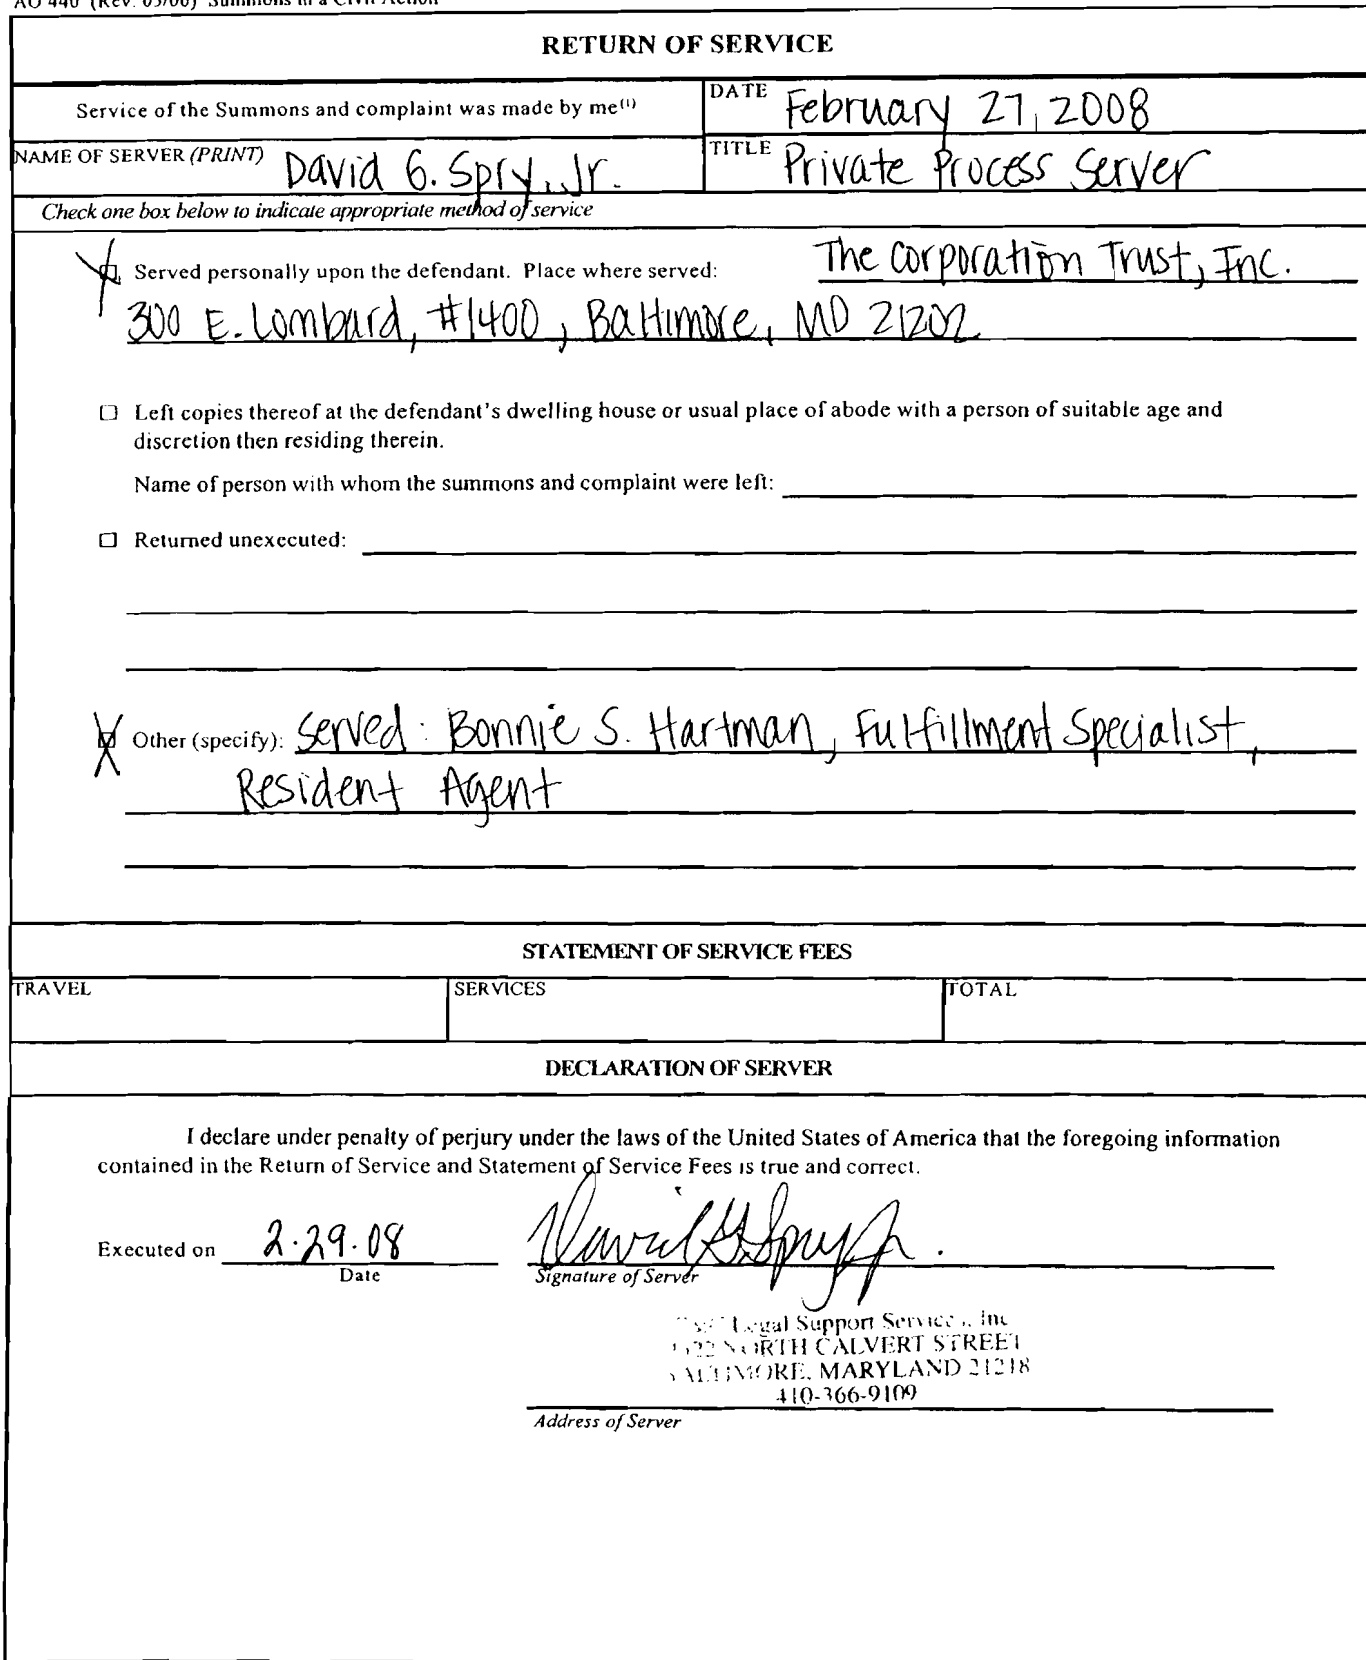 AO 440 (Rev. 05/00) Summons in a Civil Action
RETURN OF SERVICE
Service of the Summons and complaint was made by me(1)
DATE February 27, 2008
NAME OF SERVER (PRINT) David G. Spry, Jr.
TITLE Private Process Server
Check one box below to indicate appropriate method of service
Served personally upon the defendant. Place where served: The Corporation Trust, Inc.
300 E. Lombard, #1400, Baltimore, MD 21202
☐ Left copies thereof at the defendant's dwelling house or usual place of abode with a person of suitable age and
discretion then residing therein.
Name of person with whom the summons and complaint were left:
☐ Returned unexecuted:
Other (specify): Served: Bonnie S. Hartman, Fulfillment Specialist,
Resident Agent
STATEMENT OF SERVICE FEES
TRAVEL
SERVICES
TOTAL
DECLARATION OF SERVER
I declare under penalty of perjury under the laws of the United States of America that the foregoing information
contained in the Return of Service and Statement of Service Fees is true and correct.
Executed on 2.29.08
David G. Spry Jr.
Date
Signature of Server
Legal Support Services, Inc
NORTH CALVERT STREET
BALTIMORE, MARYLAND 21218
410-366-9109
Address of Server